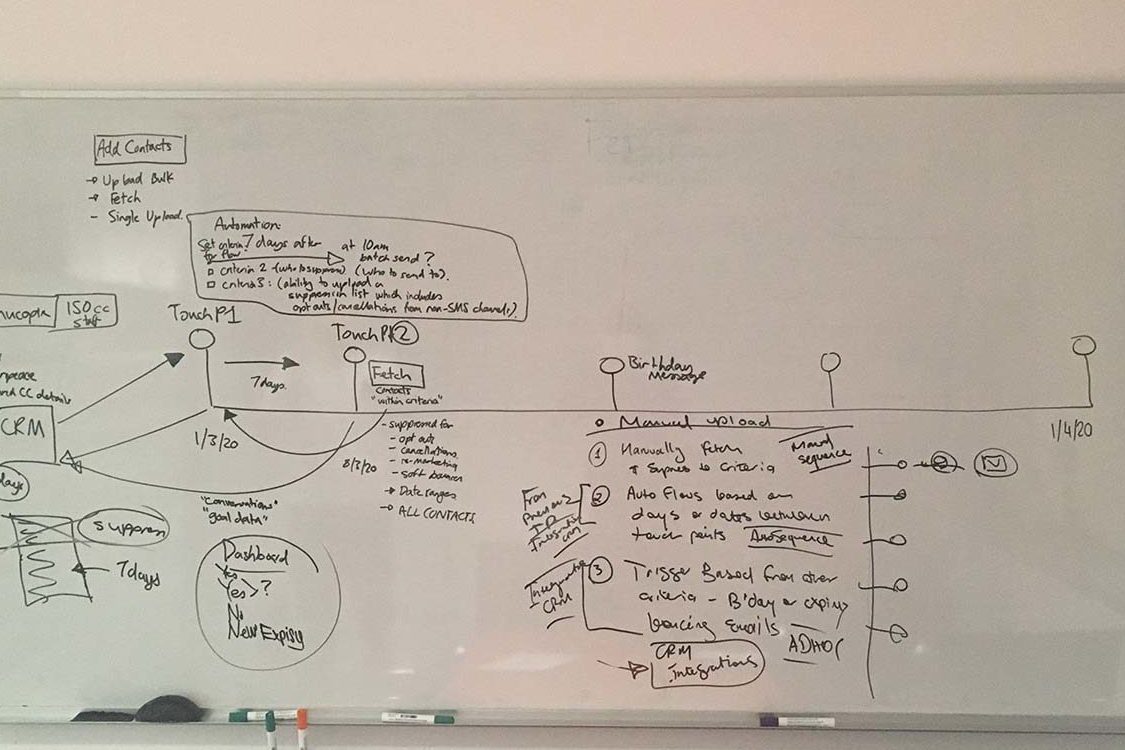 Add Contacts
→ Upload Bulk
→ Fetch
- Single Upload.
Automation:
Set criteria 7 days after at 10am
for flow batch send?
criteria 2 (who to suppress) (who to send to).
criteria 3: (ability to upload a
suppression list which includes
opt outs/cancellations from non-SMS channels)
150 cc
staff
TouchP1
TouchPt 2
7 days.
Fetch
contacts
"within criteria"
- suppressed for
- opt outs
- cancellations
- re-marketing
- soft bounces
→ Date ranges
→ ALL CONTACTS
and CC details
CRM
1/3/20
8/3/20
1/4/20
days
suppress
7days
"Conversations"
"goal data"
Dashboard
Yes
Yes > ?
No
New Expiry
Birthday
Message
Manual upload
1 Manually Fetch
criteria
Manual
sequence
From
previous
Integration
2 Auto Flows based on
days or dates between
touch points AutoSequence
Integration
CRM
3 Trigger Based from other
criteria - B'day or expiry
bouncing emails ADHOC
CRM
Integrations